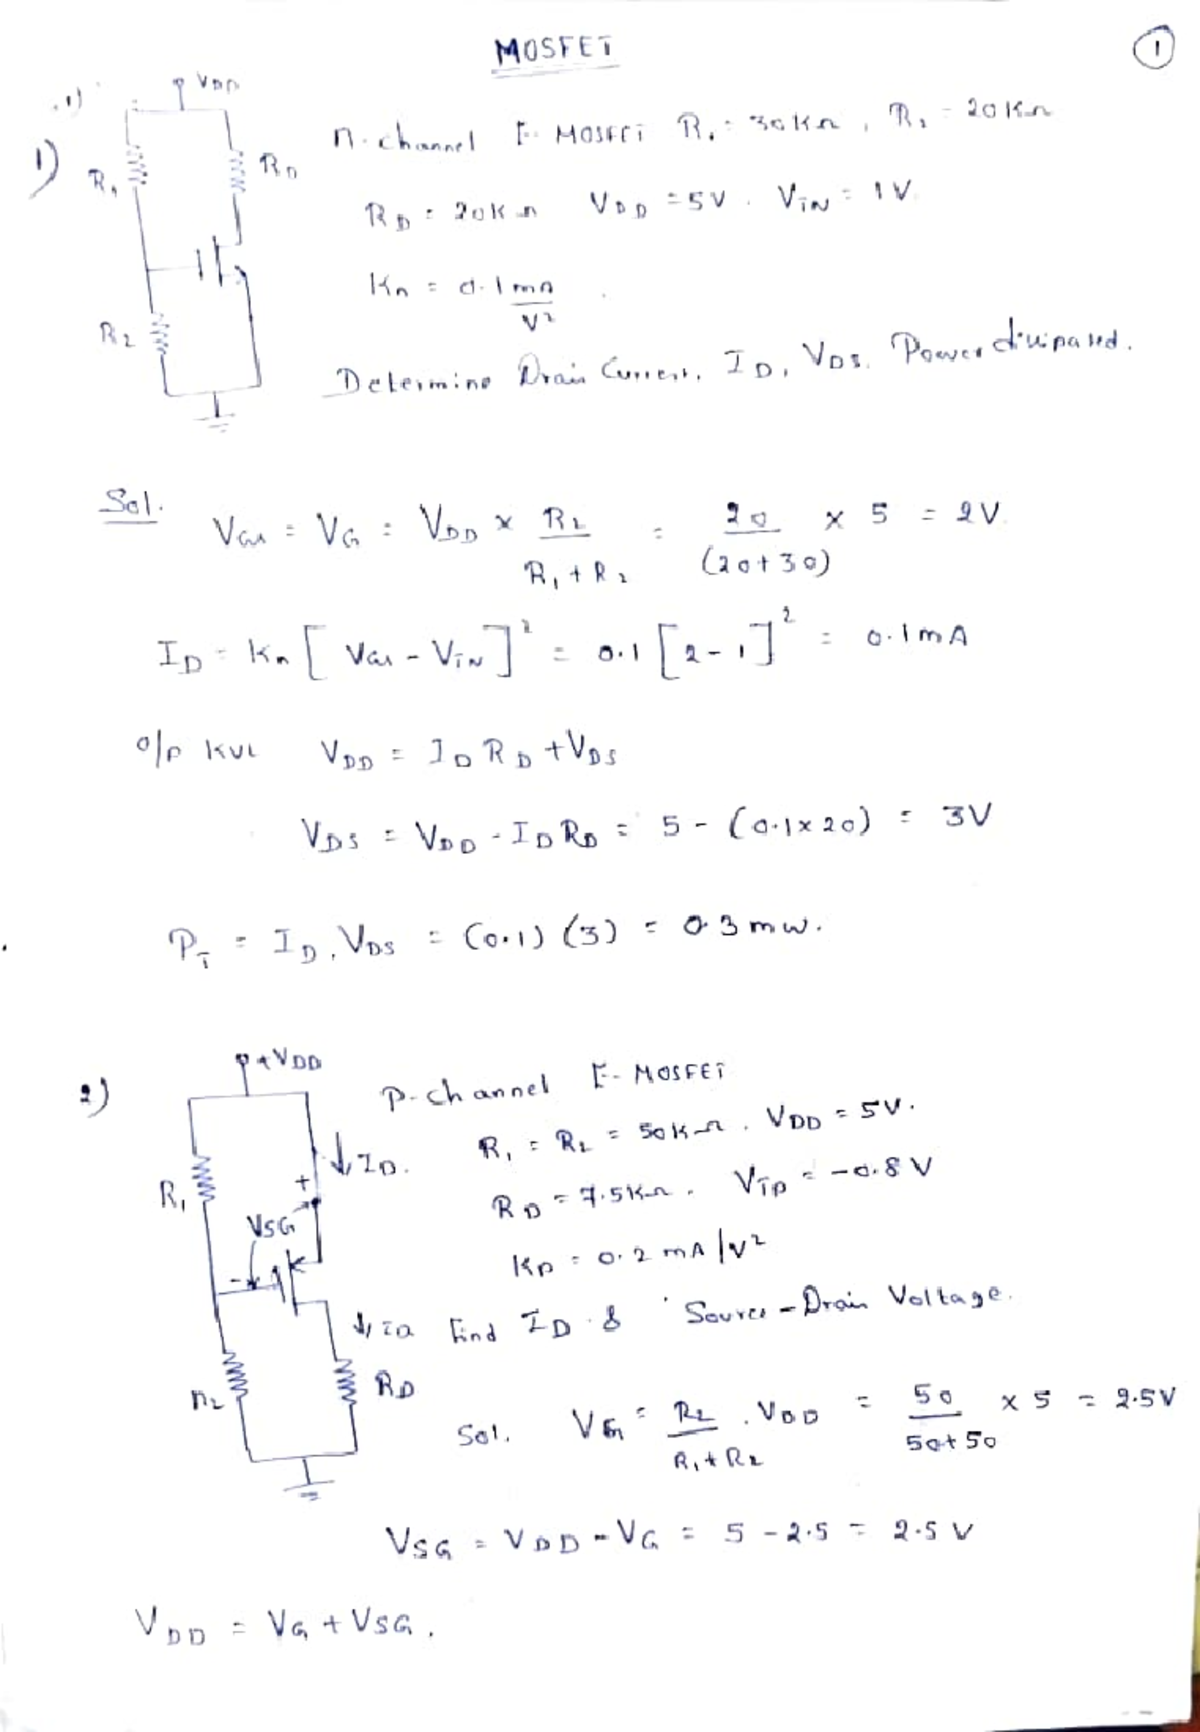 MOSFET
1
1)
1)
VDD
R1
RD
R2
n-channel E-MOSFET R1 = 30KΩ, R2 = 20KΩ
RD = 20KΩ VDD = 5V. VTN = 1V.
Kn = 0.1 mA/V²
Determine Drain Current, ID, VDS. Power dissipated.
Sol.
VGS = VG = VDD × R2/(R1 + R2) = 20/(20+30) × 5 = 2V.
ID = Kn [VGS - VTN]² = 0.1 [2 - 1]² = 0.1mA
o/p KVL VDD = ID RD + VDS
VDS = VDD - ID RD = 5 - (0.1 × 20) = 3V
PT = ID. VDS = (0.1) (3) = 0.3 mW.
2)
+VDD
ID.
R1
+
VSG
-
ID
R2
RD
P-channel E-MOSFET
R1 = R2 = 50KΩ. VDD = 5V.
RD = 7.5KΩ. VTP = -0.8V
Kp = 0.2 mA/V²
Find ID & Source-Drain Voltage.
Sol. VG = R2/(R1 + R2) . VDD = 50/(50+50) × 5 = 2.5V
VSG = VDD - VG = 5 - 2.5 = 2.5V
VDD = VG + VSG.